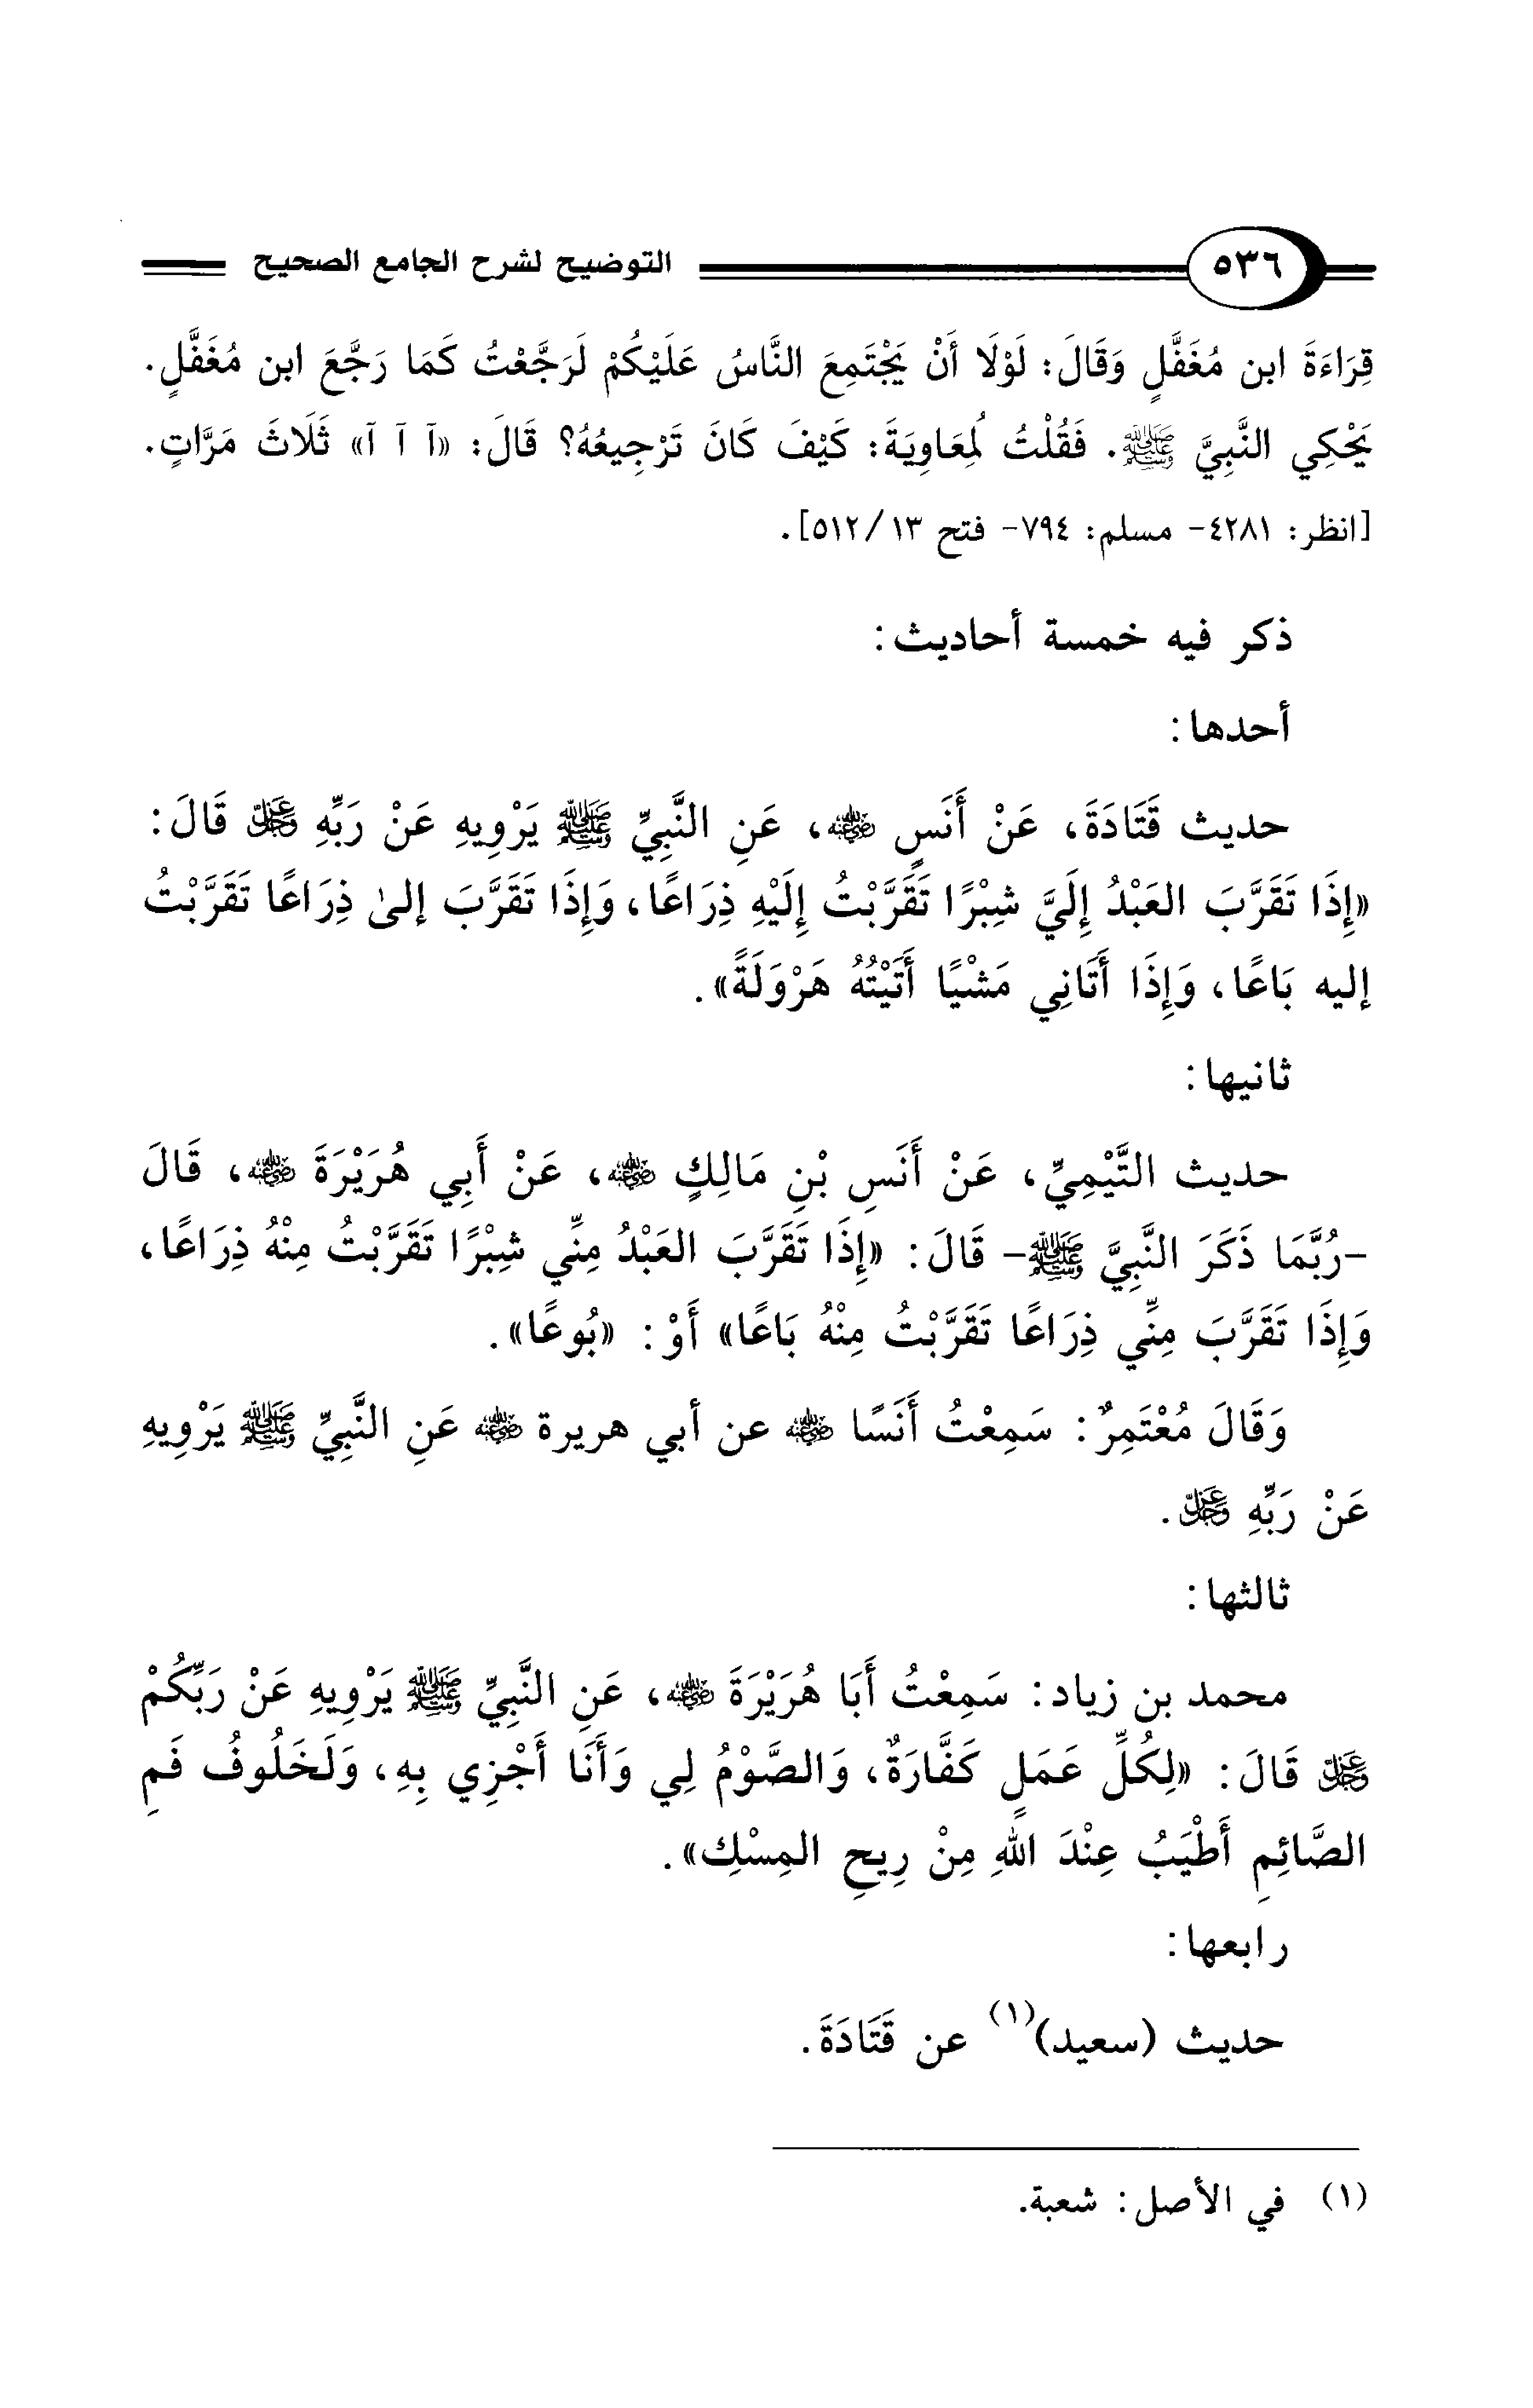 ٥٣٦ التوضيح لشرح الجامع الصحيح
قِرَاءَةَ ابن مُغَفَّلٍ وَقَالَ: لَوْلَا أَنْ يَجْتَمِعَ النَّاسُ عَلَيْكُمْ لَرَجَّعْتُ كَمَا رَجَّعَ ابن مُغَفَّلٍ.
يَحْكِي النَّبِيَّ ﷺ. فَقُلْتُ لِمُعَاوِيَةَ: كَيْفَ كَانَ تَرْجِيعُهُ؟ قَالَ: «آ آ آ» ثَلَاثَ مَرَّاتٍ.
[انظر: ٤٢٨١- مسلم: ٧٩٤- فتح ١٣/ ٥١٢].
ذكر فيه خمسة أحاديث:
أحدها:
حديث قَتَادَةَ، عَنْ أَنَسٍ رضي الله عنه، عَنِ النَّبِيِّ ﷺ يَرْوِيهِ عَنْ رَبِّهِ عز وجل قَالَ:
«إِذَا تَقَرَّبَ العَبْدُ إِلَيَّ شِبْرًا تَقَرَّبْتُ إِلَيْهِ ذِرَاعًا، وَإِذَا تَقَرَّبَ إلىٰ ذِرَاعًا تَقَرَّبْتُ
إليه بَاعًا، وَإِذَا أَتَانِي مَشْيًا أَتَيْتُهُ هَرْوَلَةً».
ثانيها:
حديث التَّيْمِيِّ، عَنْ أَنَسِ بْنِ مَالِكٍ رضي الله عنه، عَنْ أَبِي هُرَيْرَةَ رضي الله عنه، قَالَ
-رُبَّمَا ذَكَرَ النَّبِيَّ ﷺ- قَالَ: «إِذَا تَقَرَّبَ العَبْدُ مِنِّي شِبْرًا تَقَرَّبْتُ مِنْهُ ذِرَاعًا،
وَإِذَا تَقَرَّبَ مِنِّي ذِرَاعًا تَقَرَّبْتُ مِنْهُ بَاعًا» أَوْ: «بُوعًا».
وَقَالَ مُعْتَمِرٌ: سَمِعْتُ أَنَسًا رضي الله عنه عن أبي هريرة رضي الله عنه عَنِ النَّبِيِّ ﷺ يَرْوِيهِ
عَنْ رَبِّهِ عز وجل.
ثالثها:
محمد بن زياد: سَمِعْتُ أَبَا هُرَيْرَةَ رضي الله عنه، عَنِ النَّبِيِّ ﷺ يَرْوِيهِ عَنْ رَبِّكُمْ
عز وجل قَالَ: «لِكُلِّ عَمَلٍ كَفَّارَةٌ، وَالصَّوْمُ لِي وَأَنَا أَجْزِي بِهِ، وَلَخَلُوفُ فَمِ
الصَّائِمِ أَطْيَبُ عِنْدَ اللهِ مِنْ رِيحِ المِسْكِ».
رابعها:
حديث (سعيد)(١) عن قَتَادَةَ.
(١) في الأصل: شعبة.